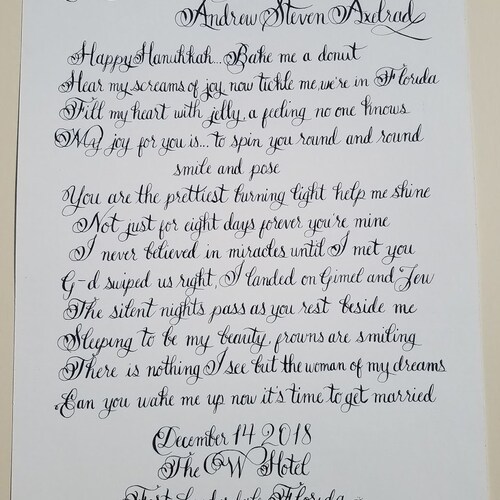 Andrew Steven Axelrad
Happy Hanukkah... Bake me a donut
Hear my screams of joy now tickle me, we're in Florida
Fill my heart with jelly, a feeling no one knows
My joy for you is... to spin you round and round
smile and pose
You are the prettiest burning light help me shine
Not just for eight days forever you're mine
I never believed in miracles until I met you
G-d swiped us right, I landed on Gimel and Jew
The silent nights pass as you rest beside me
Sleeping to be my beauty, frowns are smiling
There is nothing I see but the woman of my dreams
Can you wake me up now it's time to get married
December 14 2018
The W Hotel
Fort Lauderdale Florida